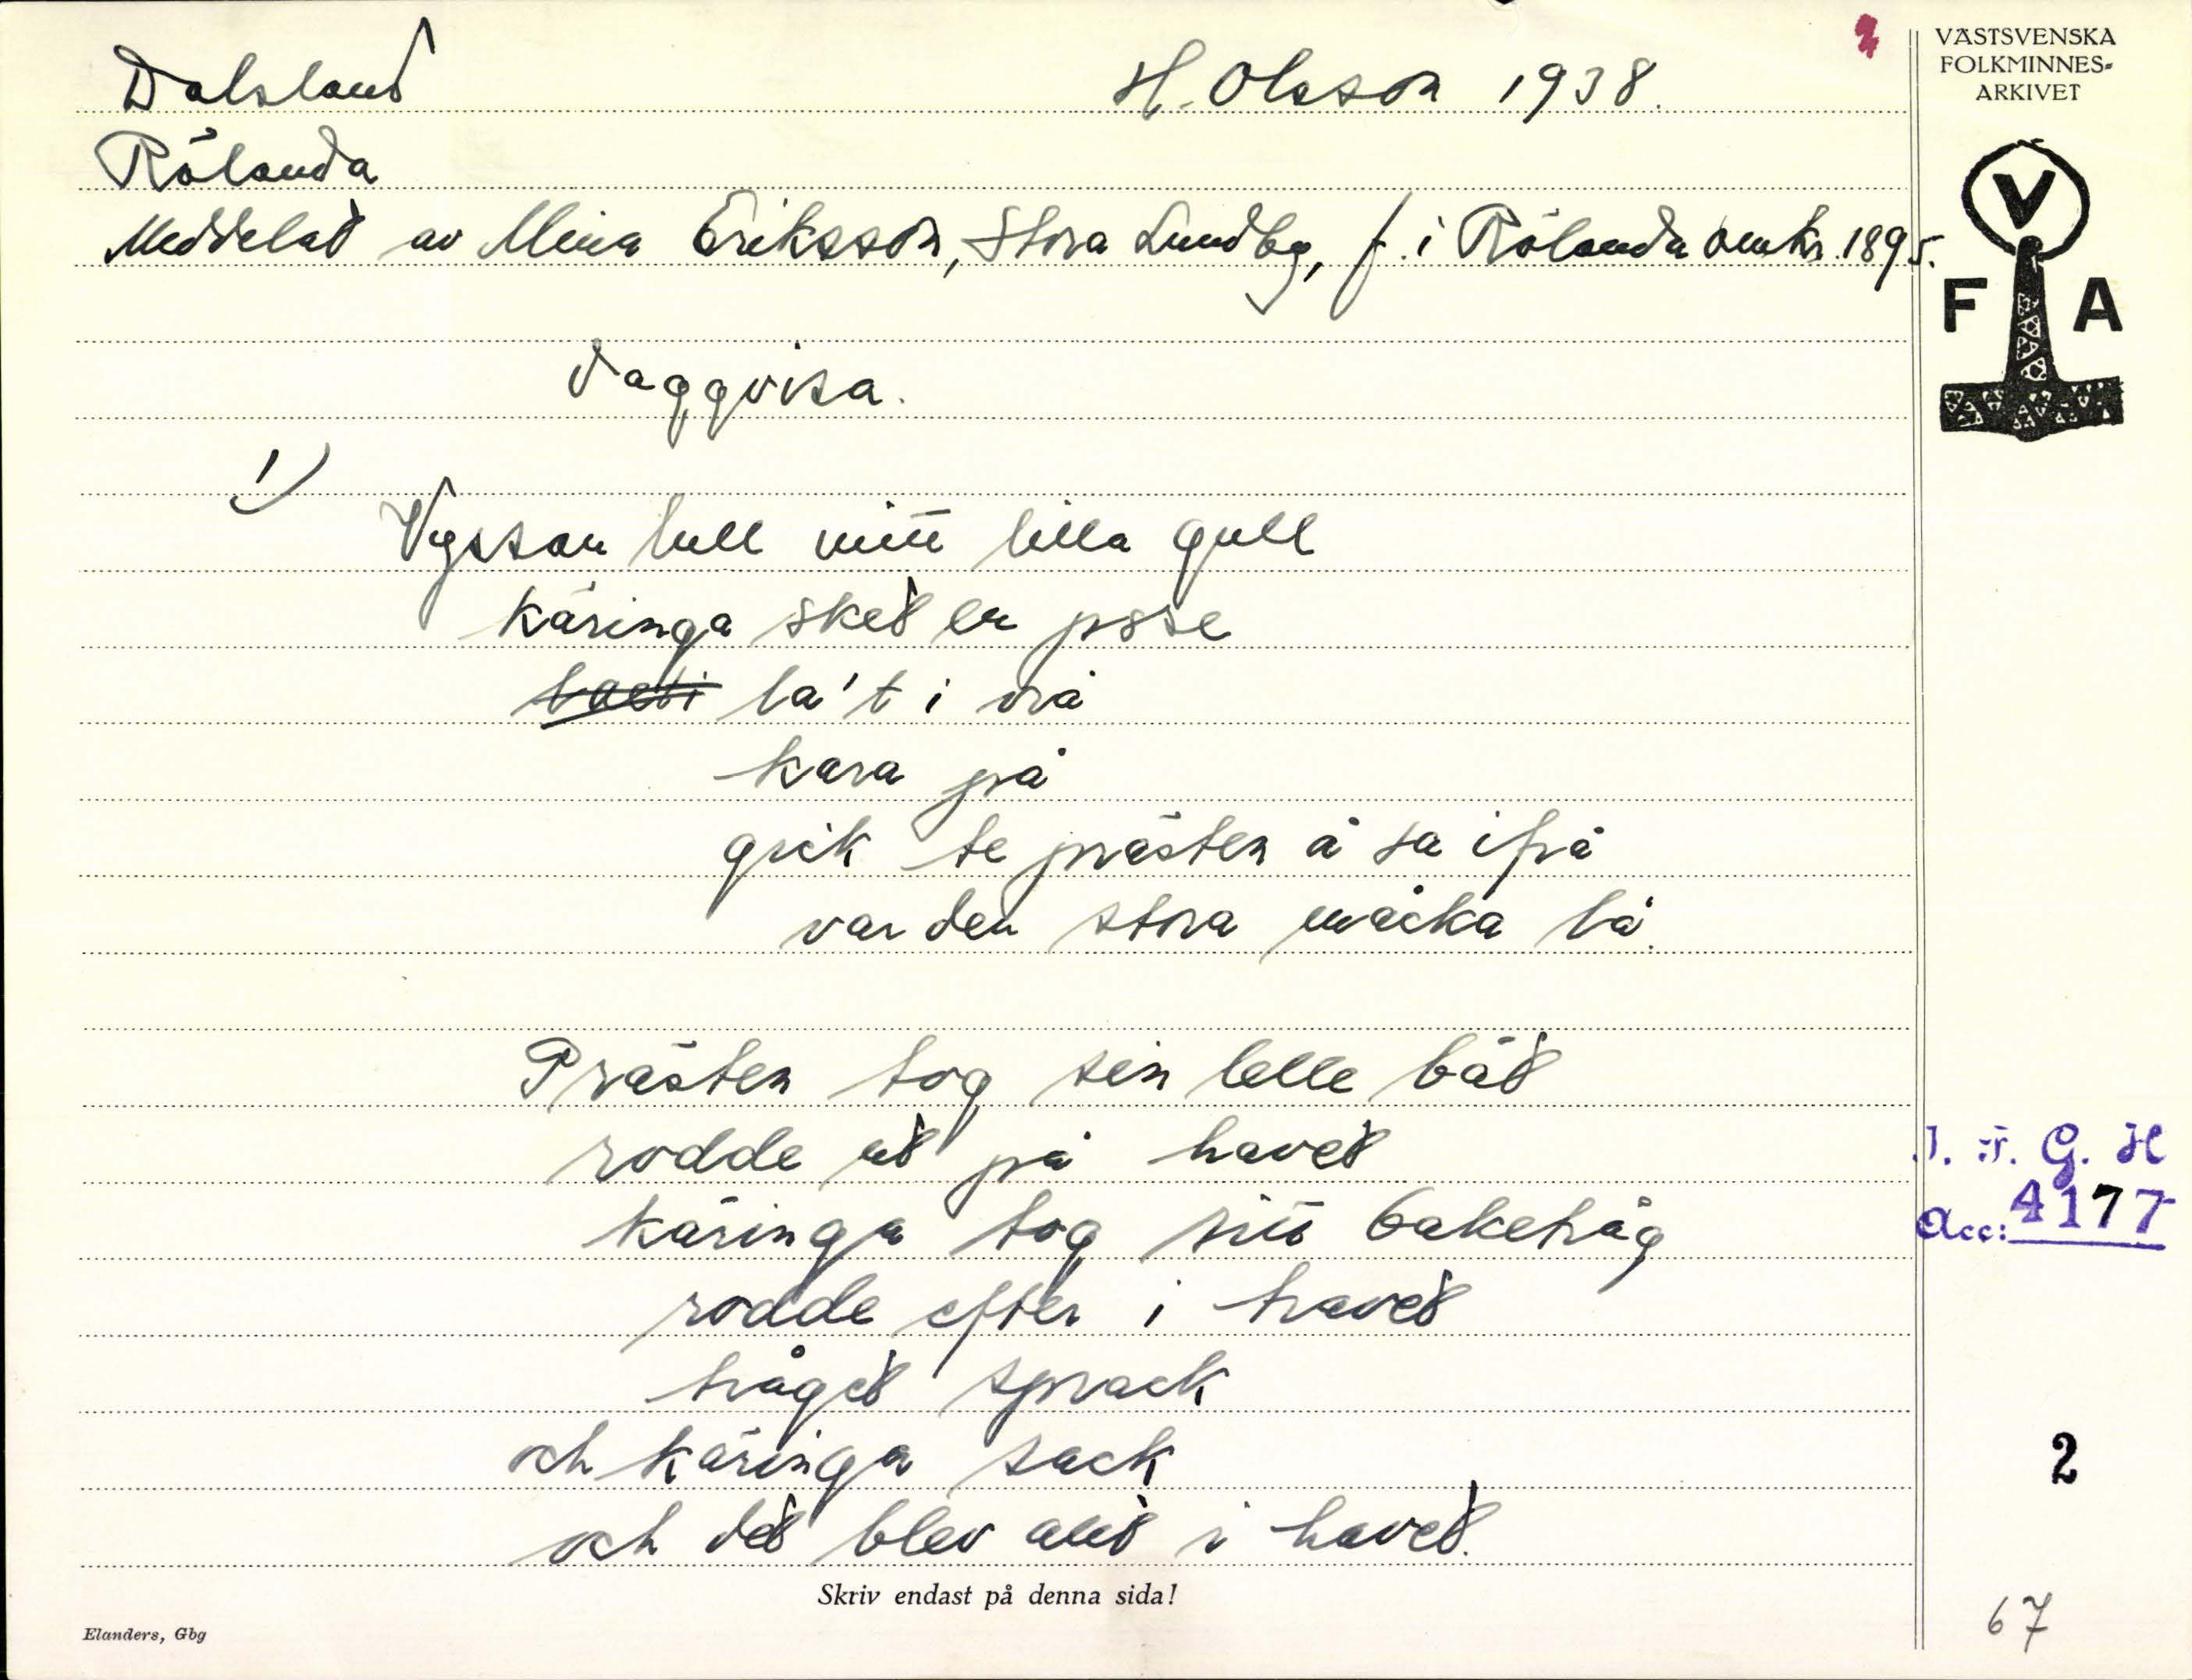 Dalsland
H. Olsson 1938.
VÄSTSVENSKA
FOLKMINNES-
ARKIVET
Rölanda
Meddelat av Mina Eriksson, Stora Lundby, f. i Rölanda omkr. 1895.
V
F A
Vaggvisa.
1)
Vyssan lull mitt lilla gull
käringa sket en posse
la't i vrå
kara på
gick te prästen å sa ifrå
var den stora mäcka lå.
Prästen tog sin lelle båt
rodde ut på havet
käringa tog sitt baketråg
rodde efter i havet
tråget sprack
och käringa sack
och det blev allt i havet.
I. F. G. H
Acc: 4177
2
Skriv endast på denna sida!
Elanders, Gbg
67